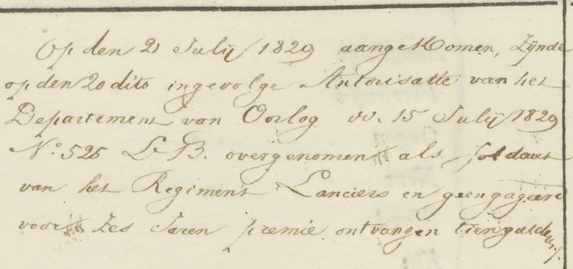 Op den 21 Julij 1829 aangekomen, Zijnde
op den 20 dito ingevolge Autorisatie van het
Departement van Oorlog vv. 15 Julij 1829
No. 526 La B. overgenomen als soldaat
van het Regiment Lanciers en geengageerd
voor Zes Jaren premie ontvangen tien gulden